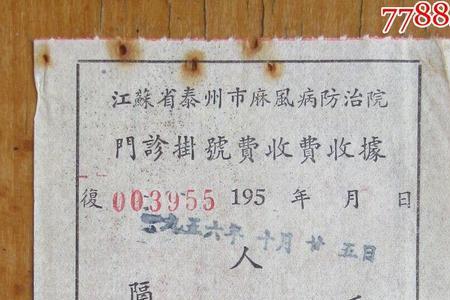 7788
江蘇省泰州市麻風病防治院
門診掛號費收費收據
復 003955 195 年 月 日
一九五六年十月廿五日
人
隔